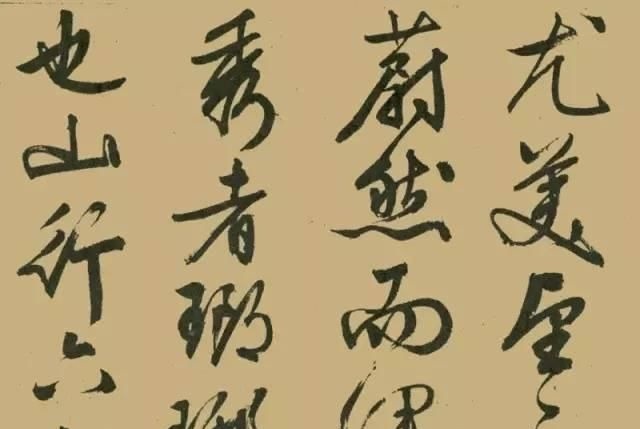 尤美望
蔚然而深
秀者瑯琊
也山行六